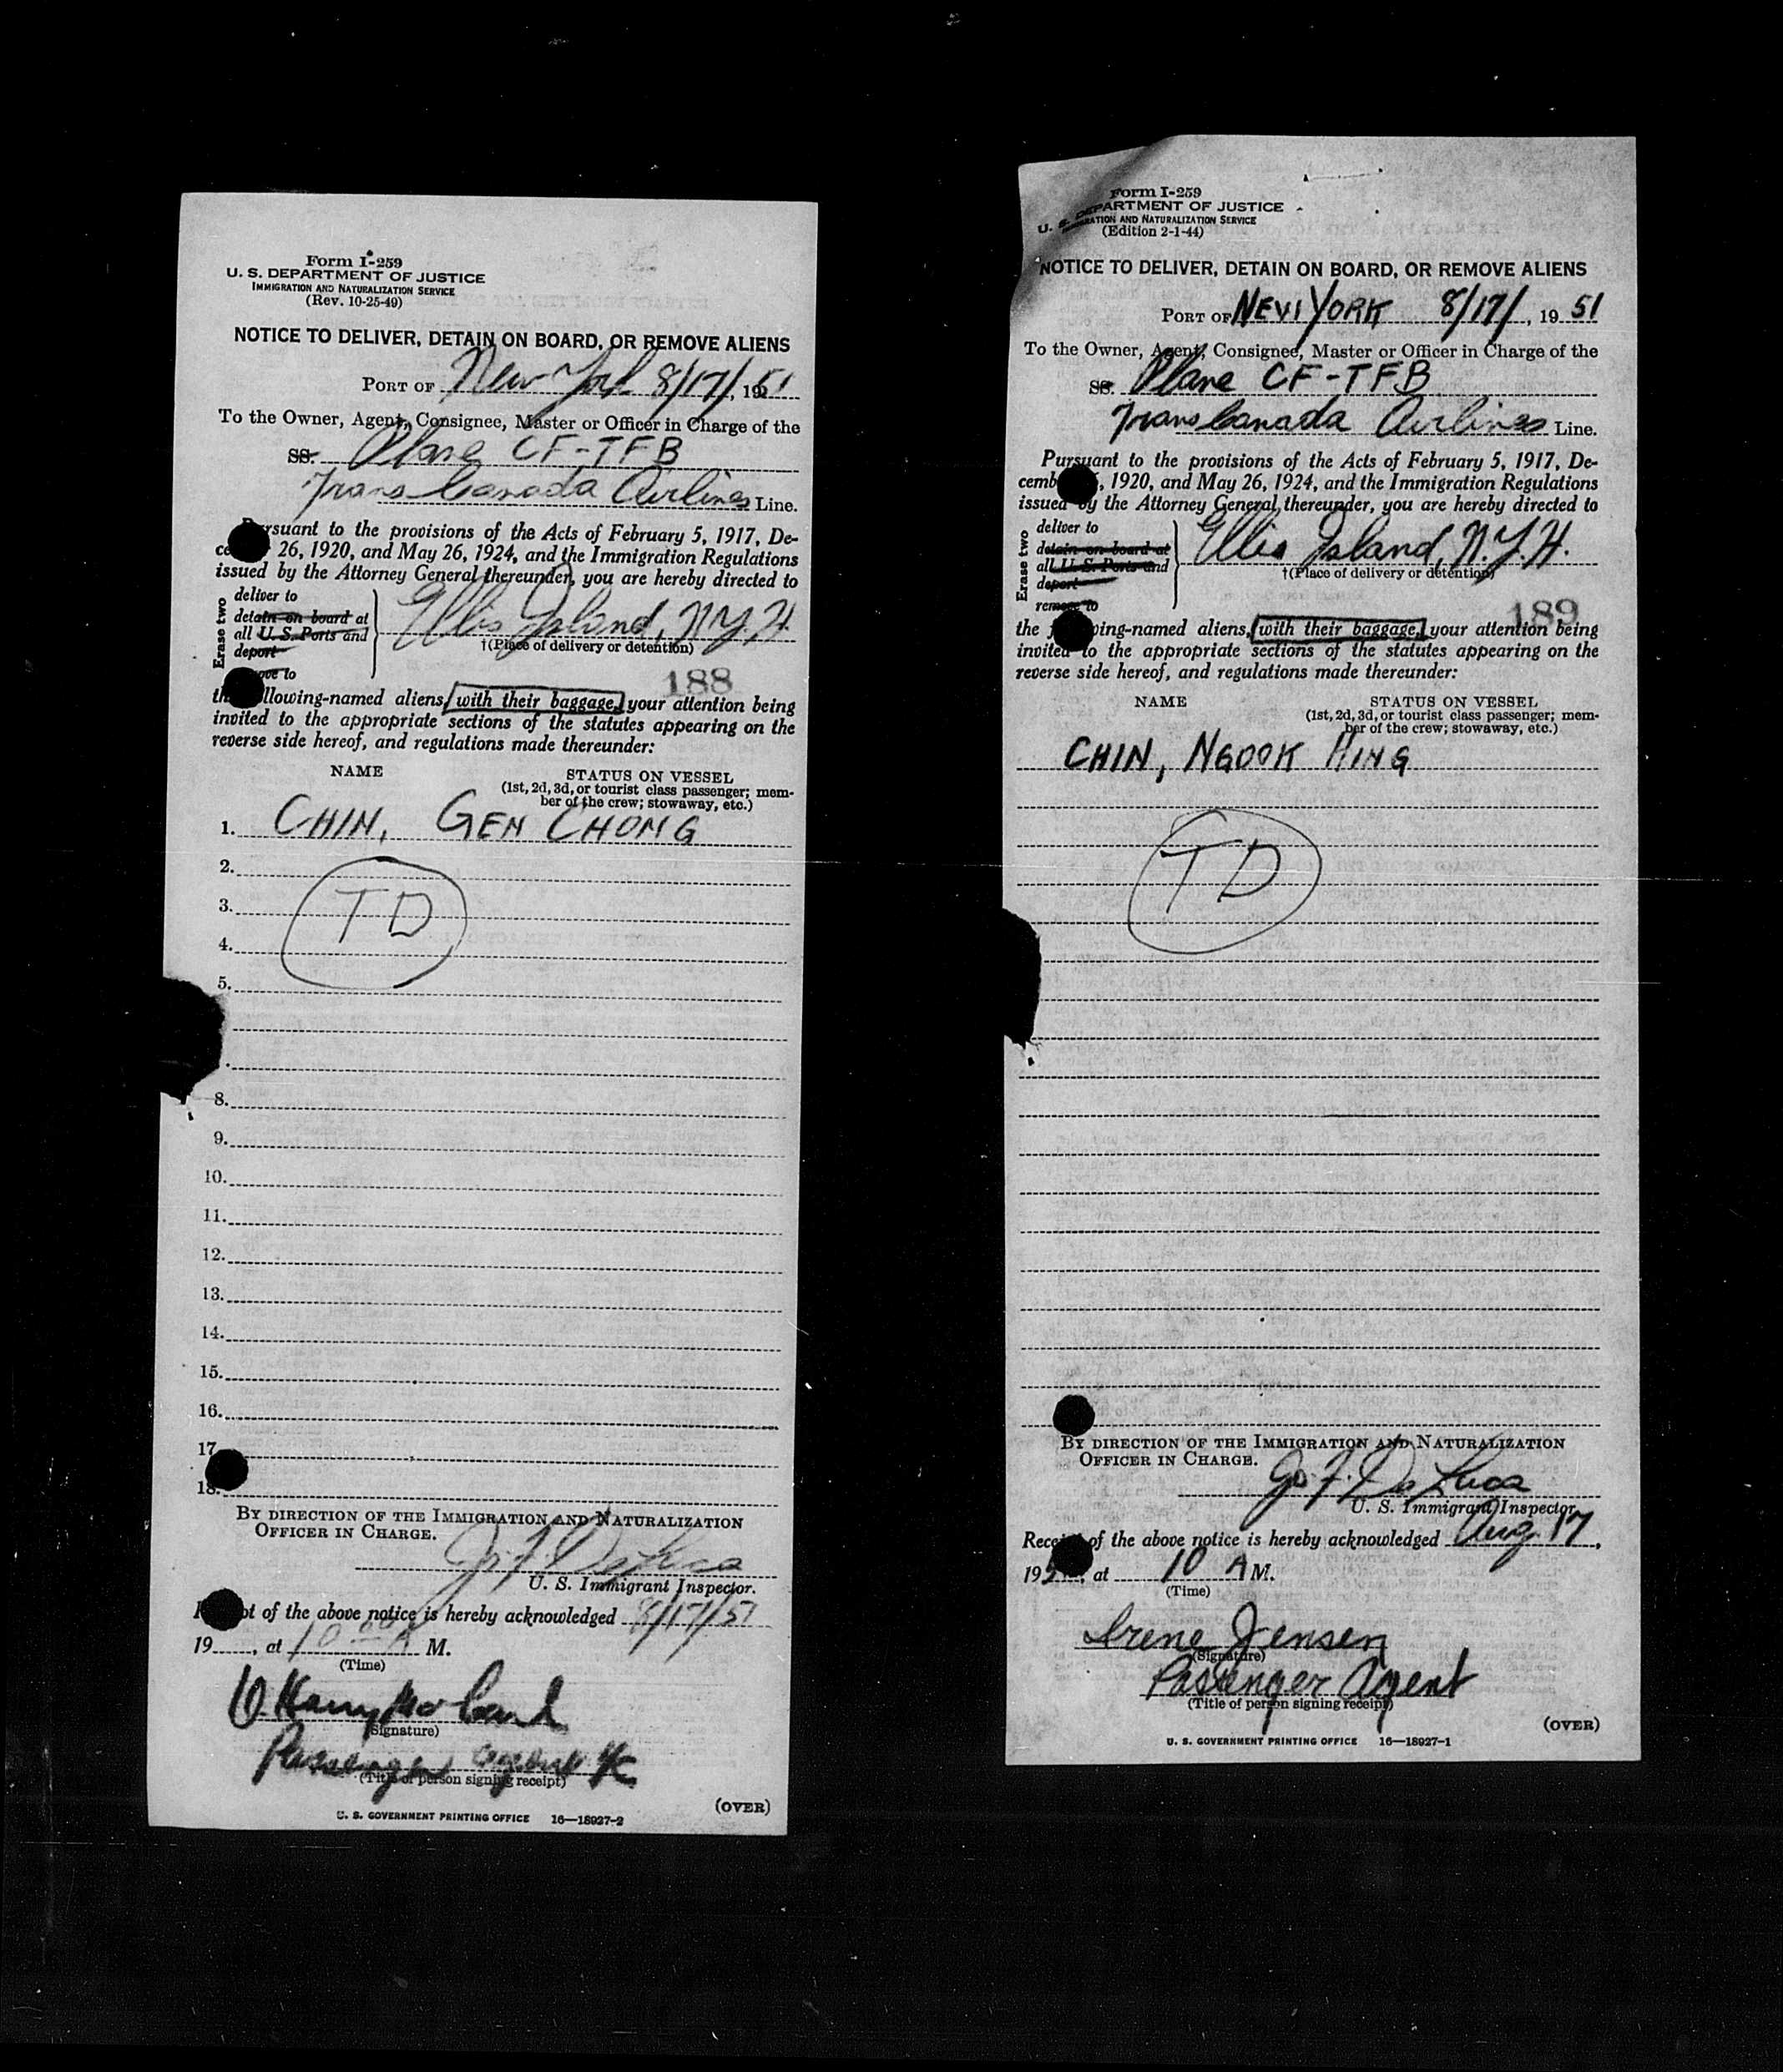 Form I-259
U. S. DEPARTMENT OF JUSTICE
IMMIGRATION AND NATURALIZATION SERVICE
(Rev. 10-25-49)
NOTICE TO DELIVER, DETAIN ON BOARD, OR REMOVE ALIENS
PORT OF New York 8/17/, 1951
To the Owner, Agent, Consignee, Master or Officer in Charge of the
SS. Plane CF-TFB
Trans Canada Airlines Line.
Pursuant to the provisions of the Acts of February 5, 1917, De-
26, 1920, and May 26, 1924, and the Immigration Regulations
issued by the Attorney General thereunder, you are hereby directed to
Erase two
deliver to
detain on board at
all U. S. Ports and
deport
to
Ellis Island, N.Y.H.
†(Place of delivery or detention)
188
the following-named aliens, with their baggage, your attention being
invited to the appropriate sections of the statutes appearing on the
reverse side hereof, and regulations made thereunder:
NAME
STATUS ON VESSEL
(1st, 2d, 3d, or tourist class passenger; mem-
ber of the crew; stowaway, etc.)
1. CHIN, GEN CHONG
2.
TD
3.
4.
5.
8.
9.
10.
11.
12.
13.
14.
15.
16.
17.
18.
BY DIRECTION OF THE IMMIGRATION AND NATURALIZATION
OFFICER IN CHARGE.
Jo. F. DeLuca
U. S. Immigrant Inspector.
of the above notice is hereby acknowledged 8/17/51
19, at 10 00 A M.
(Time)
(Signature)
Passenger Agent
(Title of person signing receipt)
(OVER)
U. S. GOVERNMENT PRINTING OFFICE 16—18927-2
Form I-259
U. S. DEPARTMENT OF JUSTICE
IMMIGRATION AND NATURALIZATION SERVICE
(Edition 2-1-44)
NOTICE TO DELIVER, DETAIN ON BOARD, OR REMOVE ALIENS
PORT OF NEW YORK 8/17/, 1951
To the Owner, Agent, Consignee, Master or Officer in Charge of the
SS. Plane CF-TFB
Trans Canada Airlines Line.
Pursuant to the provisions of the Acts of February 5, 1917, De-
cemb, 1920, and May 26, 1924, and the Immigration Regulations
issued by the Attorney General thereunder, you are hereby directed to
Erase two
deliver to
detain on board at
all U. S. Ports and
deport
remove to
Ellis Island, N.Y.H.
†(Place of delivery or detention)
189
the following-named aliens, with their baggage, your attention being
invited to the appropriate sections of the statutes appearing on the
reverse side hereof, and regulations made thereunder:
NAME
STATUS ON VESSEL
(1st, 2d, 3d, or tourist class passenger; mem-
ber of the crew; stowaway, etc.)
CHIN, NGOOK HING
TD
BY DIRECTION OF THE IMMIGRATION AND NATURALIZATION
OFFICER IN CHARGE.
Jo. F. DeLuca
U. S. Immigrant Inspector.
Receipt of the above notice is hereby acknowledged Aug. 17,
195, at 10 A M.
(Time)
Irene Jensen
(Signature)
Passenger Agent
(Title of person signing receipt)
(OVER)
U. S. GOVERNMENT PRINTING OFFICE 16—18927-1